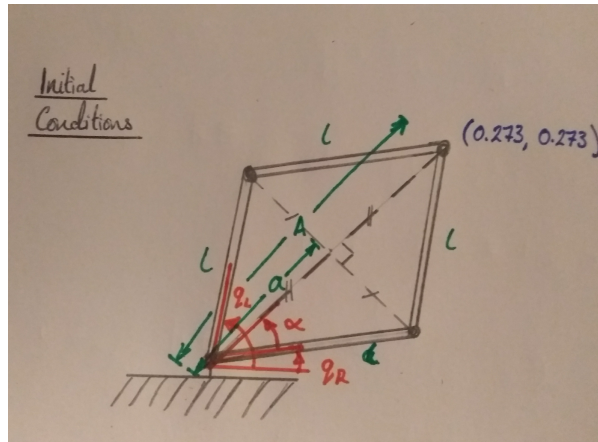 Initial
Conditions
l
(0.273, 0.273)
A
l
l
a
qL
α
qR